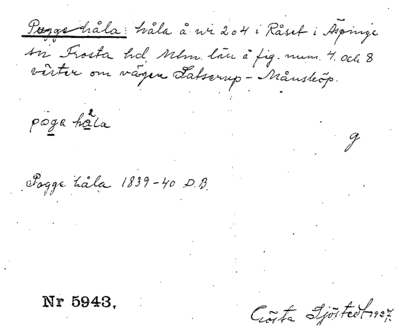 Pogge håla: håla å nr 204 i Råset i Äspinge
sn Frosta hd Mlm. län å fig. num. 4. och 8
väster om vägen Satserup - Månsköp.
påga hå2la
g
Pogge håla 1839-40 D.B.
Nr 5943.
Gösta Sjöstedt 1927.